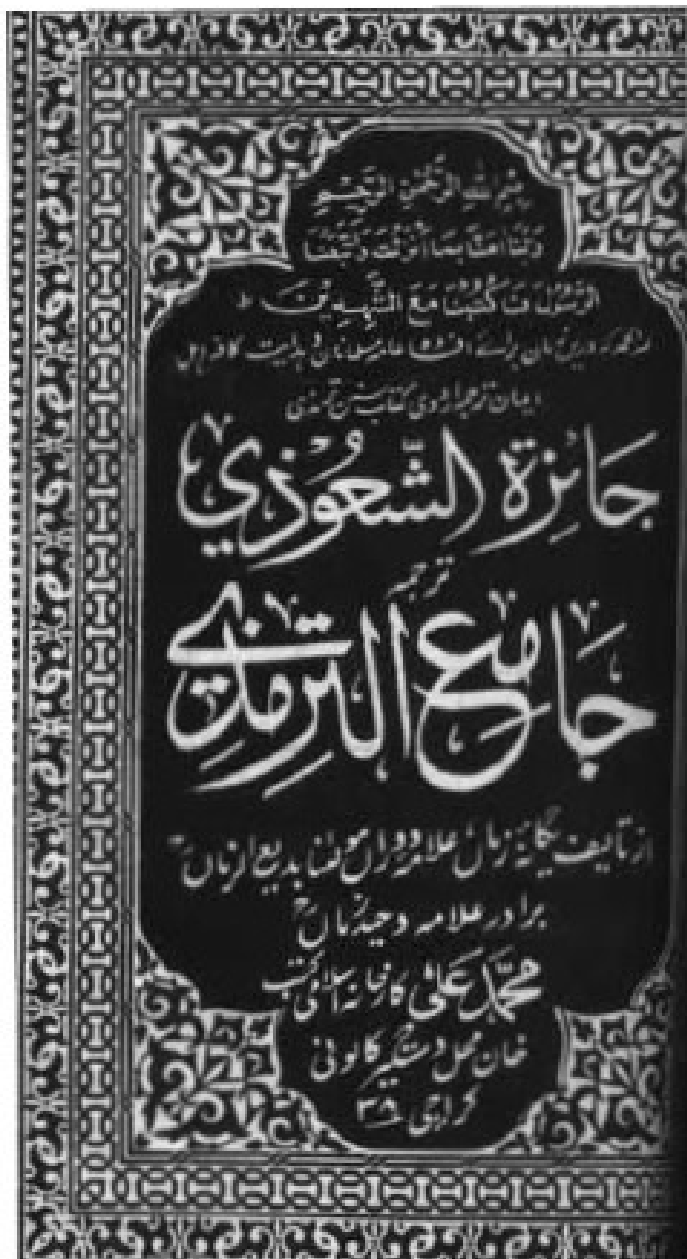 بِسْمِ اللهِ الرَّحْمٰنِ الرَّحِيْمِ
رَبَّنَا اٰمَنَّا بِمَا اَنْزَلْتَ وَاتَّبَعْنَا
الرَّسُوْلَ فَاكْتُبْنَا مَعَ الشّٰهِدِيْنَ
ترجمہ اردوی کتاب سنن ترمذی
جَائِزَة الشَّعُوْذِي
ترجمہ
جَامِع التِّرمِذِي
از تالیف یگانۂ زماں علامہ دوراں مولٰنا بدیع الزماں
برادر علامہ وحید زماں
محمد علی کارخانہ اسلامی کتب
خان محل دستگیر کالونی
کراچی ۳۸